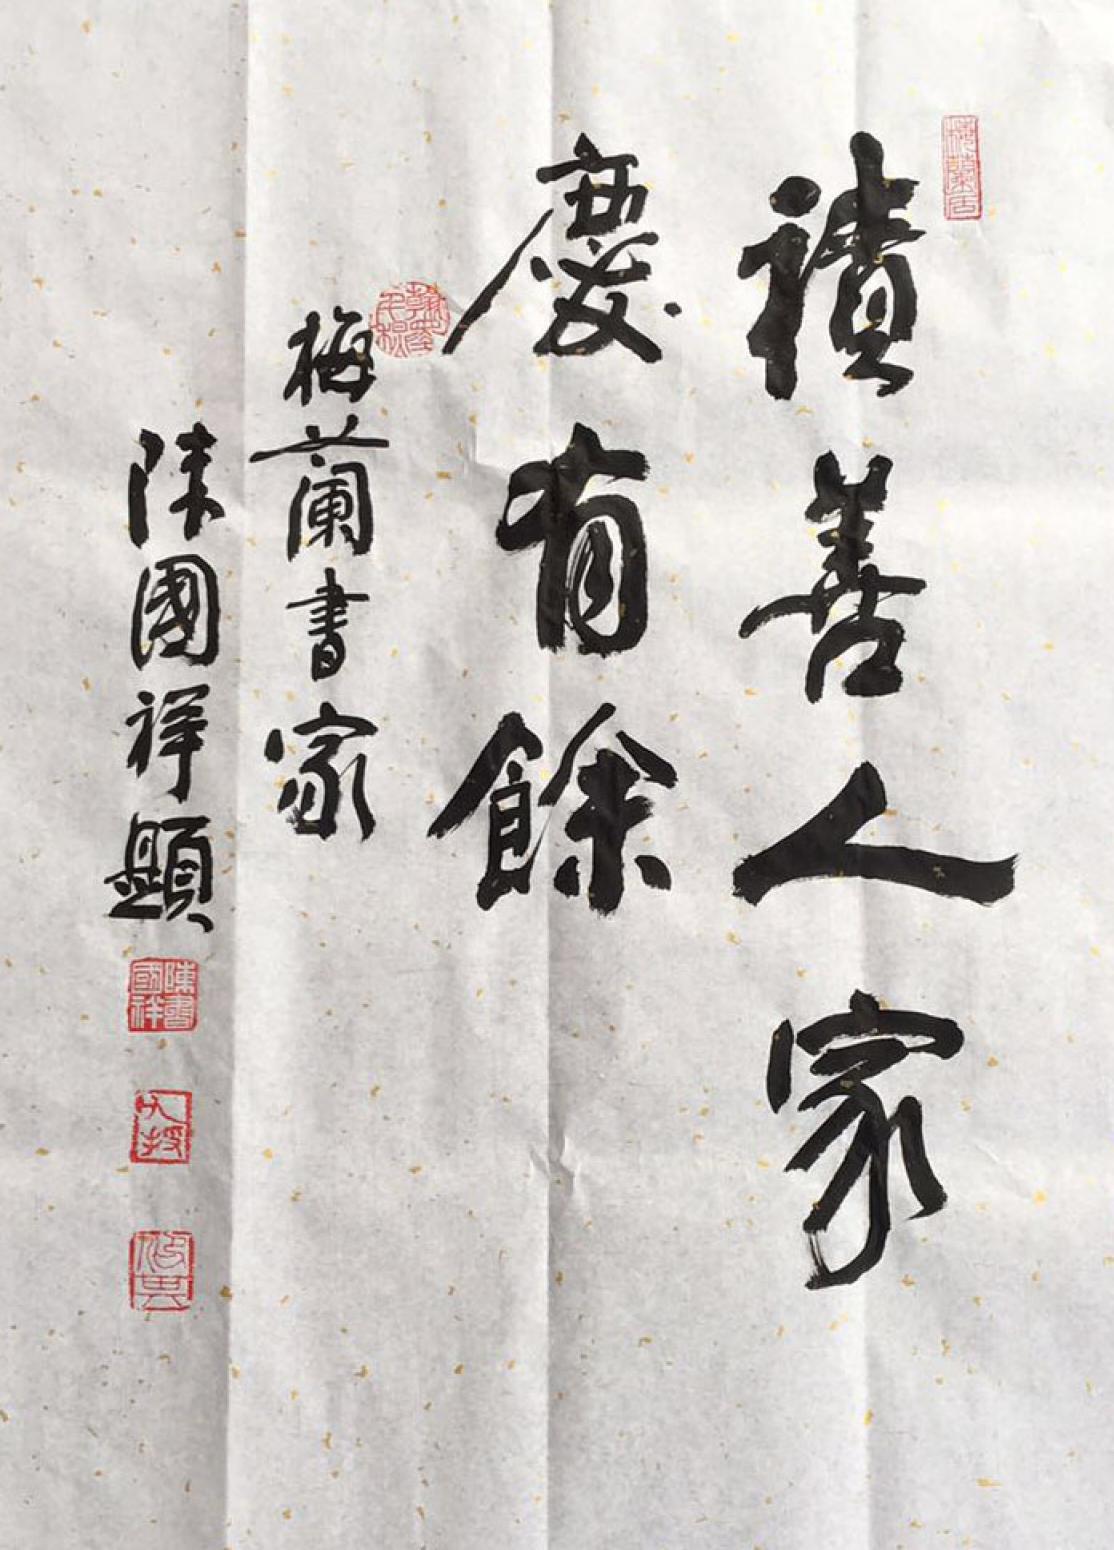 積善人家
慶有餘
梅蘭書家
陳國祥題
梅蘭居
陳國祥書